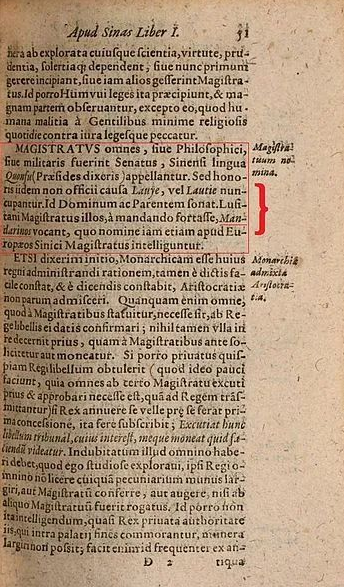 Apud Sinas Liber I. 51
nera ab explorata cuiusque scientia, virtute, pru-
dentia, solertiaq; dependent; siue nunc primùm
gerere incipiant, siue iam alios gesserint Magistra-
tus. Id porrò Humvui leges ita præcipiunt, & ma-
gnam partem obseruantur, excepto eo, quod hu-
mana malitia à Gentilibus minime religiosis
quotidie contra iura legesque peccatur.
MAGISTRATVS omnes, siue Philosophici,
siue militaris fuerint Senatus, Sinensi lingua
Quonfu (Præsides dixeris) appellantur. Sed hono-
ris iidem non officii causa Lauye, vel Lautie nun-
cupantur. Id Dominum ac Parentem sonat. Lusi-
tani Magistratus illos, à mandando fortasse, Man-
darinos vocant, quo nomine iam etiam apud Eu-
ropæos Sinici Magistratus intelliguntur.
Magistra-
tuum no-
mina.
ETSI dixerim initio, Monarchicam esse huius
regni administrandi rationem, tamen è dictis fa-
cile constat, & è dicendis constabit, Aristocratiæ
non parum admisceri. Quanquam enim omne,
quod à Magistratibus statuitur, necesse fit, ab Re-
ge libellis ei datis confirmari; nihil tamen vlla in
re decernit prius, quam à Magistratibus ante so-
licitetur aut moneatur. Si porro priuatus quis-
piam Regi libellum obtulerit (quod ideo pauci
faciunt, quia omnes ab certo Magistratu excuti
prius & approbari necesse est, quàm ad Regem trãs-
mittantur) si Rex annuere se velle præ se ferat pri-
ma concessione, ita fere subscribit; Excutiat hunc
libellum tribunal, cuius interest, meque moneat quid fa-
ciendũ videatur. Indubitatum illud omnino habe-
ri debet, quod ego studiose exploraui, ipsi Regi o-
mnino nõ licere cuiquã pecuniarium munus lar-
giri, aut Magistratũ conferre, aut augere, nisi ab
aliquo Magistratuũ fuerit rogatus. Id porrò non
ita intelligendum, quasi Rex priuata authoritate
iis, qui intra palatij fines commorantur, munera
largiri non possit; facit enim id frequenter ex an-
D 2 tiqua
Monarchiæ
admixta
Aristocra-
tia.